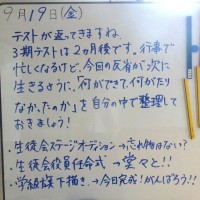 9月19日(金)
テストが返ってきますね。
3期テストは2ヵ月後です。行事で
忙しくなるけど、今回の反省が次に
生きるように、何ができて、何がたり
なかったのか」を自分の中で整理して
おきましょう!
・生徒会ステージオーディション→忘れ物はない?
・生徒会役員任命式→堂々と!!
・学級旗下描き、→今日完成!がんばろう!!